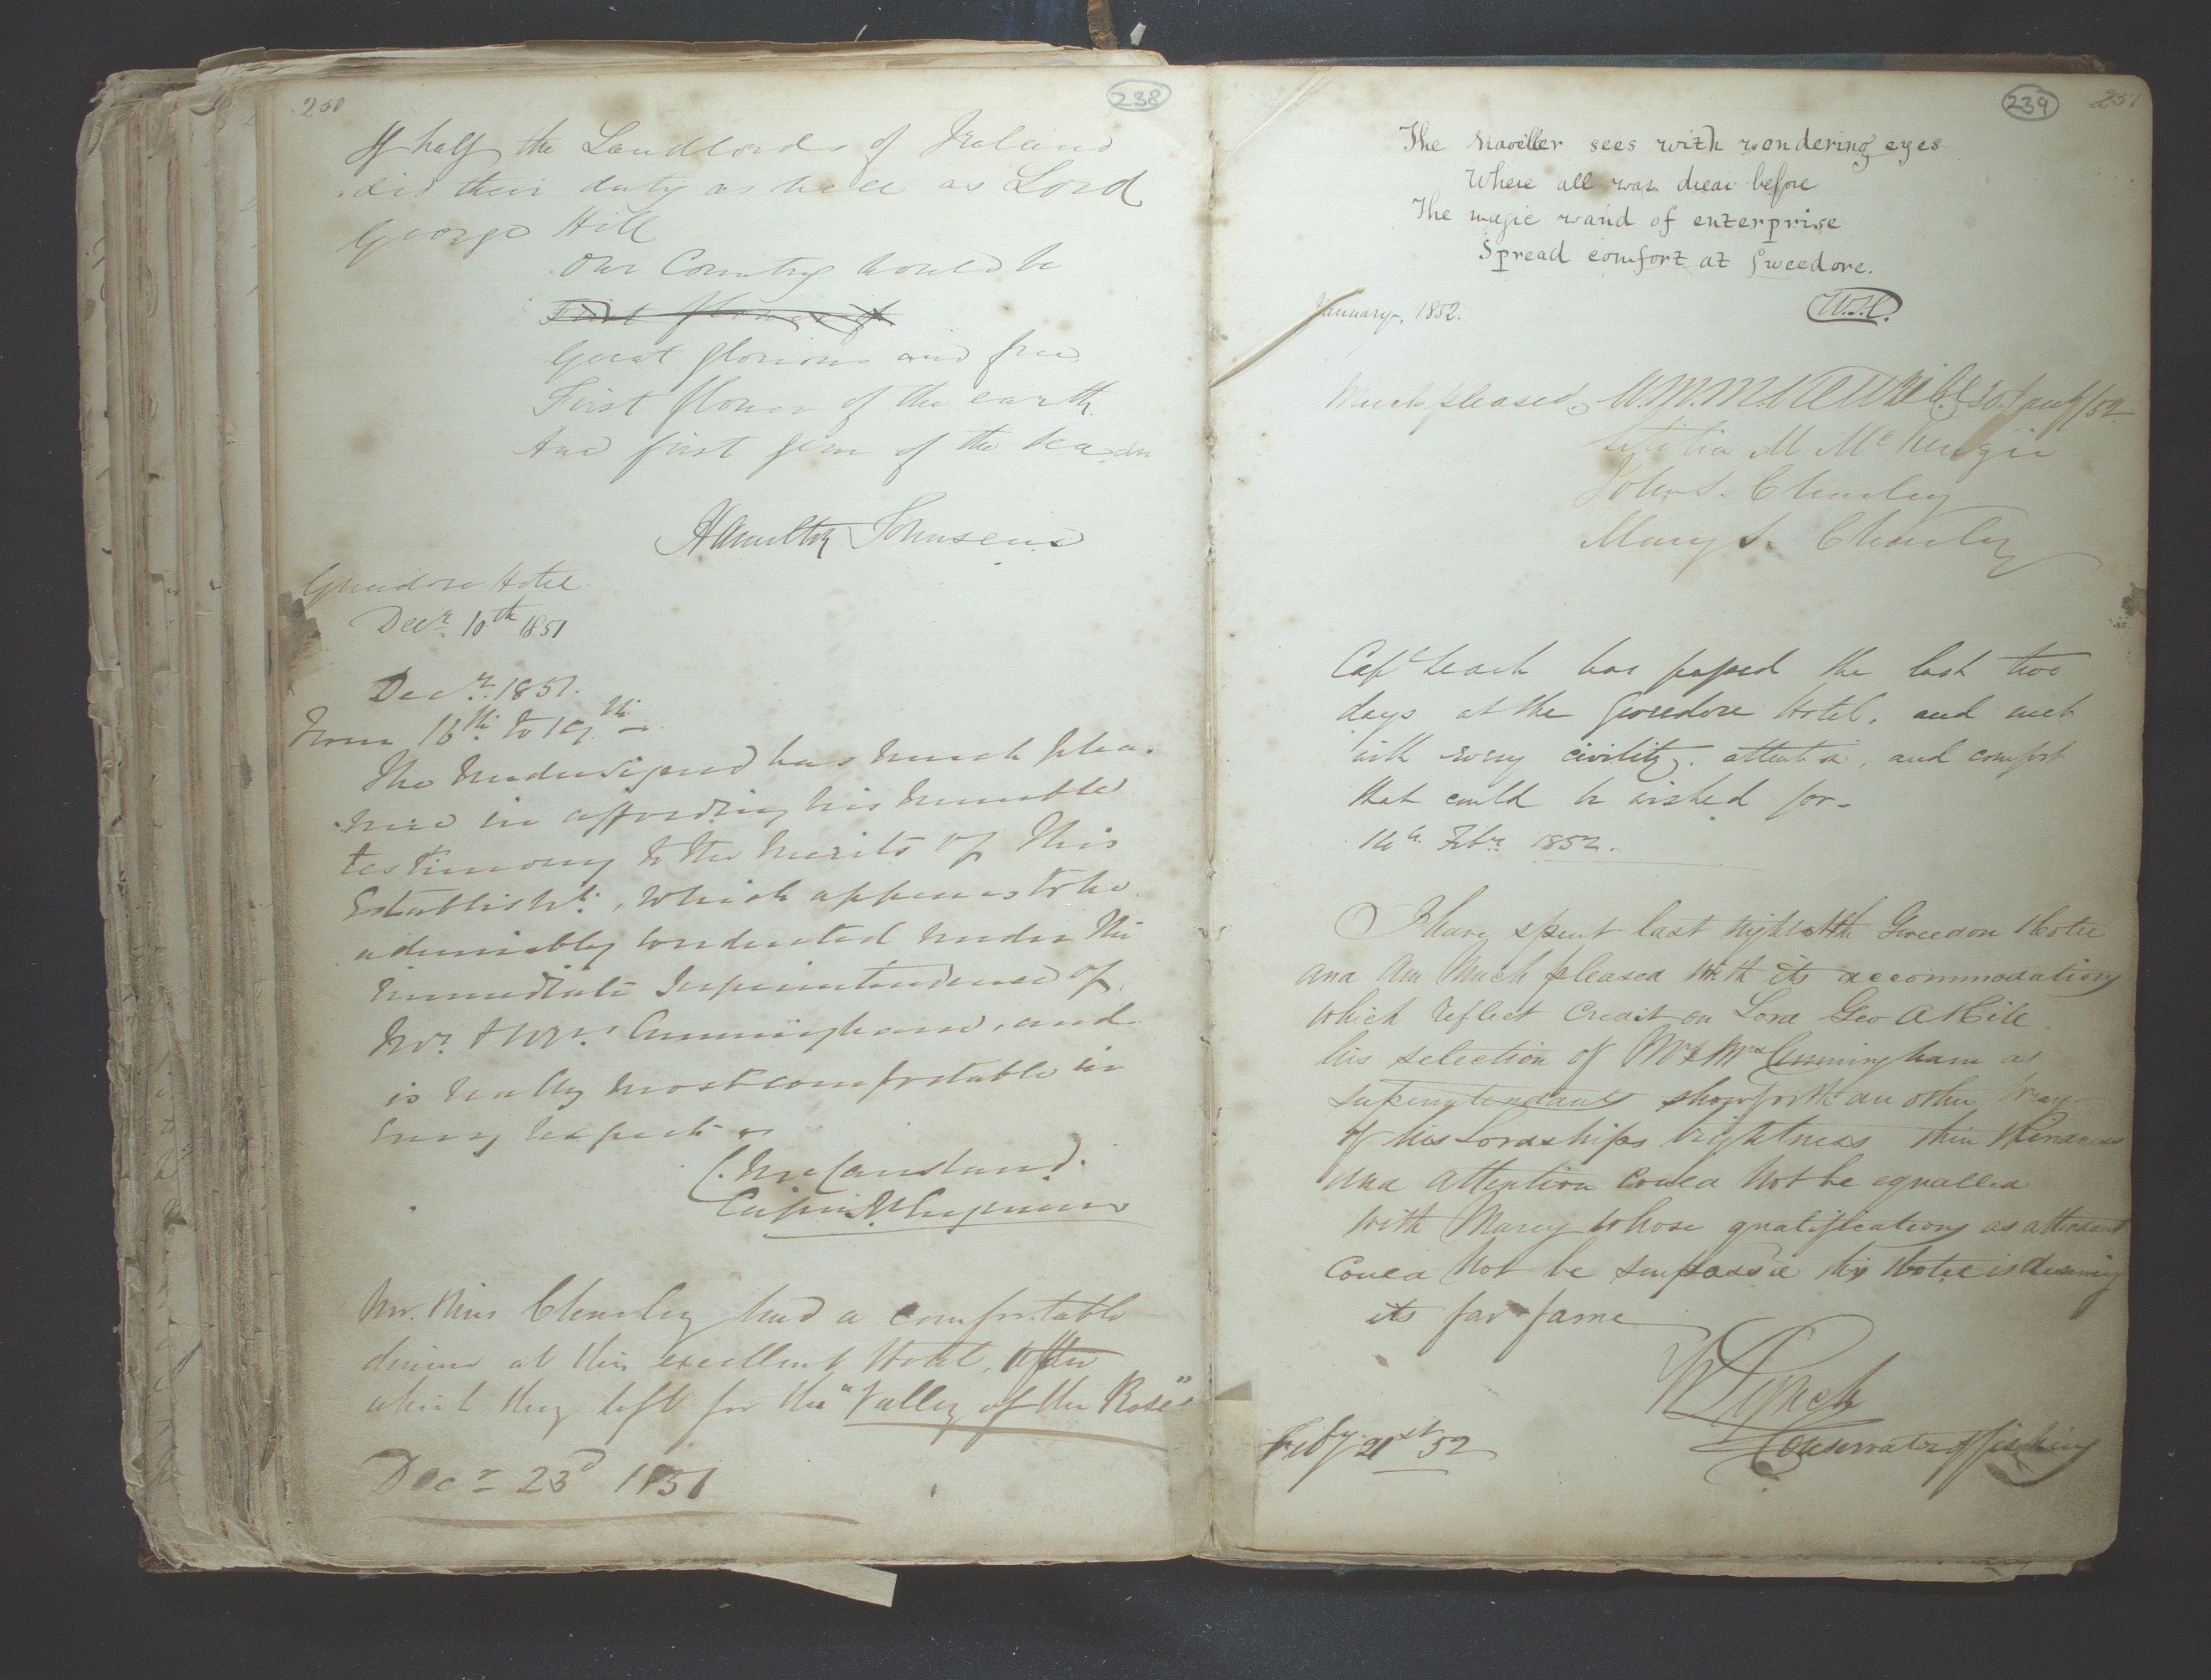 250
238
If half the Landlords of Ireland
did their duty as well as Lord
George Hill
Our Country would be
First flower of
Great glorious and free
First flower of the earth
And first gem of the sea
Hamilton Johnson
Gweedore Hotel
Decr. 10th 1851
Decr. 1851.
From 16th to 19th
The Undersigned has much plea-
sure in affording his humble
testimony to the merits of this
Establisht., which appears to be
admirably conducted under the
immediate Superintendence of
Mr. & Mrs. Cunningham, and
is really most comfortable in
every respect
C. McCausland.
Mr. Miss Charley had a comfortable
dinner at this excellent Hotel, after
which they left for the "Valley of the Roses"
Decr 23d 1851
239
251
The traveller sees with wondering eyes
Where all was drear before
The magic wand of enterprise
Spread comfort at Gweedore.
January, 1852.
W.H.
Much pleased. 30 Jany/52
Letitia M McKenzie
John S. Charley
Mary S. Charley
Capt Leach has passed the last two
days at the Gweedore Hotel, and met
with every civility, attention, and comfort
that could be wished for-
16th Feby 1852.
I have spent last night at the Gweedore Hotel
and am much pleased with its accommodation
which reflect credit on Lord Geo A Hill
his selection of Mr & Mrs Cunningham as
superintendants shows forth an other bray
of his Lordships brightness their kindness
and attention could not be equalled
with Marcy whose qualifications as attendant
could not be surpass'd this Hotel is deserving
its far fame
W Lynch
Feby 21st 52
Conservator of fishing